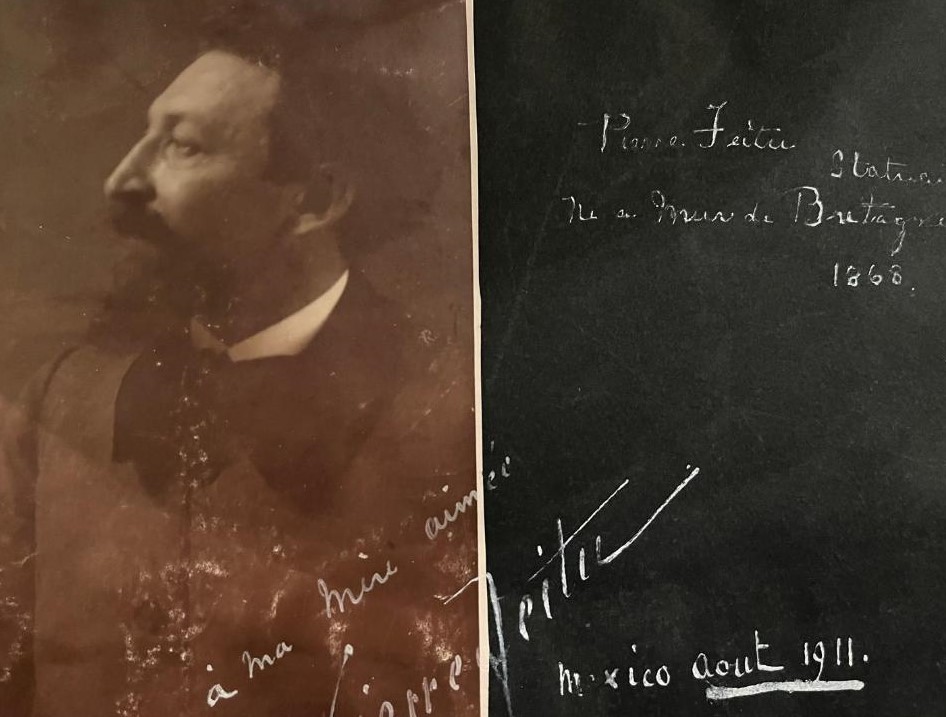 Pierre Feitu
Statuai
Né a Mur de Bretagne
1868.
à ma Mère aimée
Feitu
Mexico aout 1911.